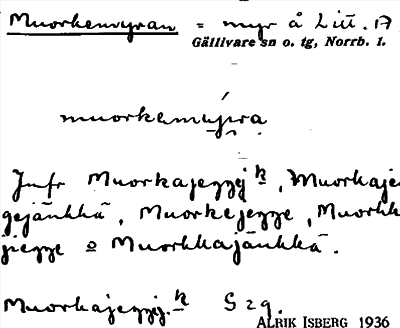 Muorkemyran = myr å Litt. A
Gällivare sn o. tg, Norrb. l.
muorkemyı̣ra
Jmfr Muorkajeggej k, Muorkaje
gejänkkä, Muorkejegge, Muorkk
jiegge o Muorkkajänkkä.
Muorkajeggj. k S 29.
ALRIK ISBERG 1936